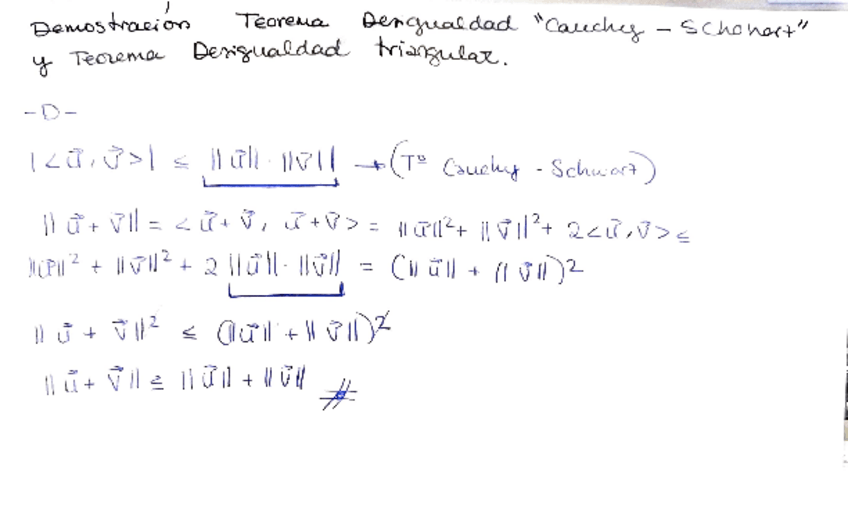 Demostración Teorema Dengualdad "Cauchy - Schonart"
y Teorema Desigualdad triangular.
-D-
|<ū, v̄>| ≤ ||ū|| · ||v̄|| → (Tª Cauchy - Schwart)
||ū + v̄|| = <ū + v̄, ū + v̄> = ||ū||² + ||v̄||² + 2<ū, v̄> ≤
||ū||² + ||v̄||² + 2 ||ū|| · ||v̄|| = (||ū|| + ||v̄||)²
||ū + v̄||² ≤ (||ū|| + ||v̄||)²
||ū + v̄|| ≤ ||ū|| + ||v̄|| #